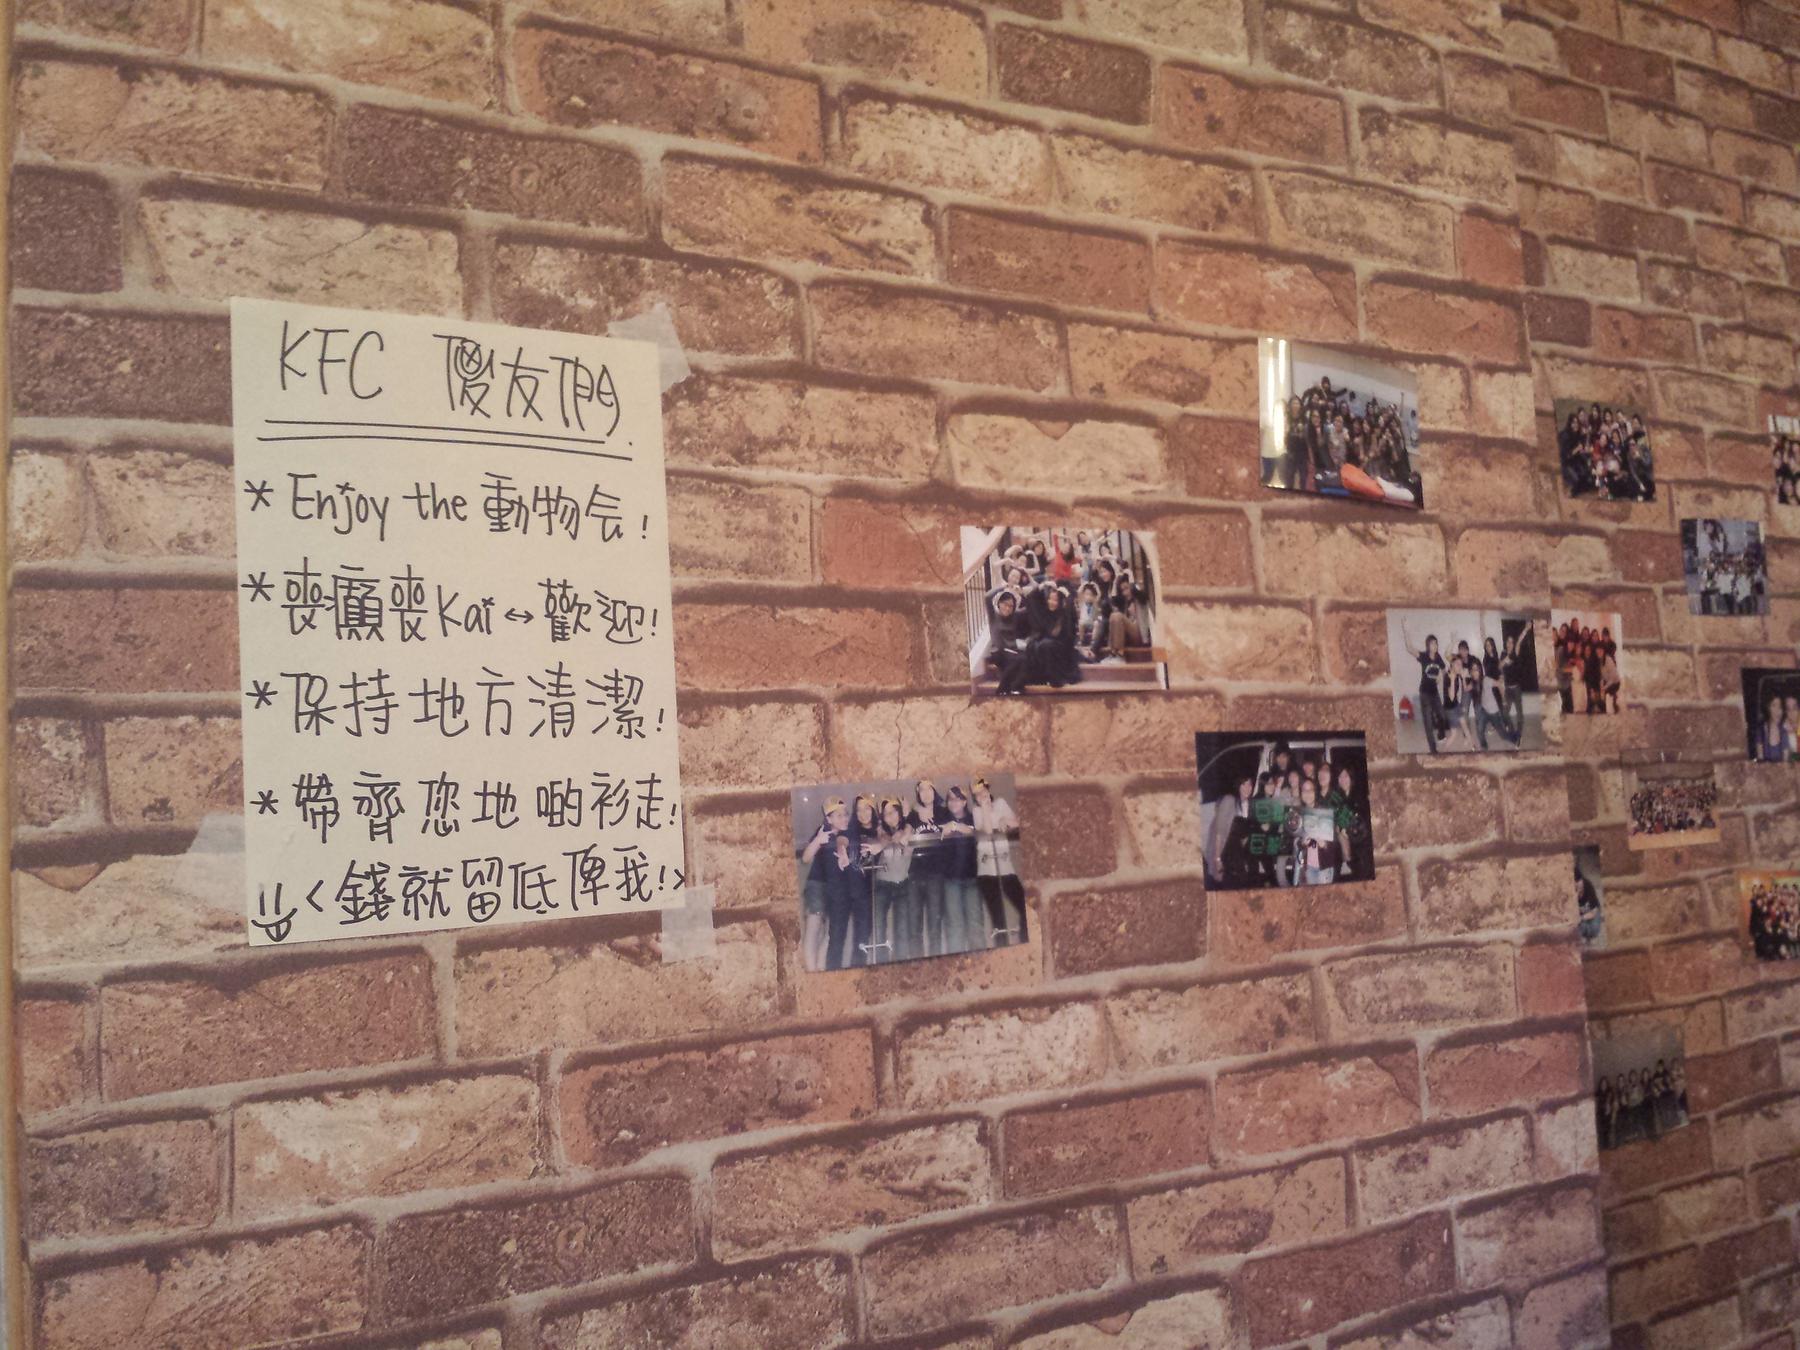 KFC 傻友們
* Enjoy the 動物会!
* 喪癲喪Kai ↔ 歡迎!
* 保持地方清潔!
* 帶齊您地啲衫走!
<錢就留低俾我!>